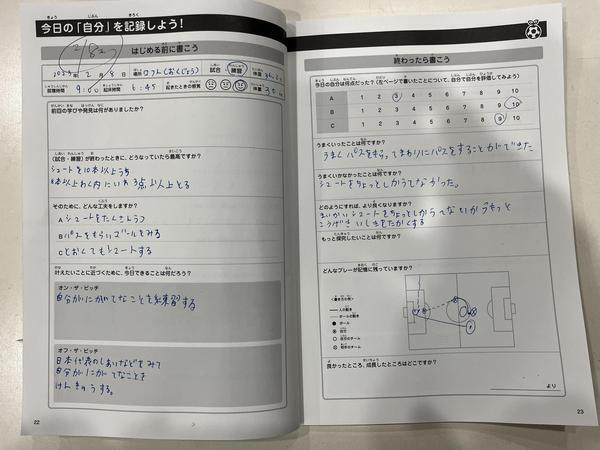 今日の「自分」を記録しよう!
はじめる前に書こう
2023年 2月 8日 場所 試合・練習 体温
就寝時間 9:00 起床時間 6:45 起きたときの感覚 体重 30
前回の学びや発見は何がありましたか?
〈試合・練習〉が終わったときに、どうなっていたら最高ですか?
シュートを10本以上うち
本以上わく内にいれ3点以上とる
そのために、どんな工夫をしますか?
A シュートをたくさんうつ
B パスをもらいゴールをみる
C とおくてもシュートする
叶えたいことに近づくために、今日できることは何だろう?
オン・ザ・ピッチ
自分がにがてなことを練習する
オフ・ザ・ピッチ
日本代表のしあいなどをみて
自分がにがてなことを
けんきゅうする。
22
終わったら書こう
今日の自分は何点だった?(左ページで書いたことについて、自分で自分を評価してみよう)
A 1 2 3 4 5 6 7 8 9 10
B 1 2 3 4 5 6 7 8 9 10
C 1 2 3 4 5 6 7 8 9 10
うまくいったことは何ですか?
うまくパスをもらってまわりにパスをすることができた
うまくいかなかったことは何ですか?
シュートをちょっとしかうてなかった。
どのようにすれば、より良くなりますか?
まいかいシュートをちょっとしからてないからもっと
こうげきいしきをたかくする
もっと探究したいことは何ですか?
どんなプレーが記憶に残っていますか?
〈書き方の例〉
人の動き
ボールの動き
ボール
自分
自分のチーム
相手のチーム
良かったところ、成長したところはどこですか?
より
23